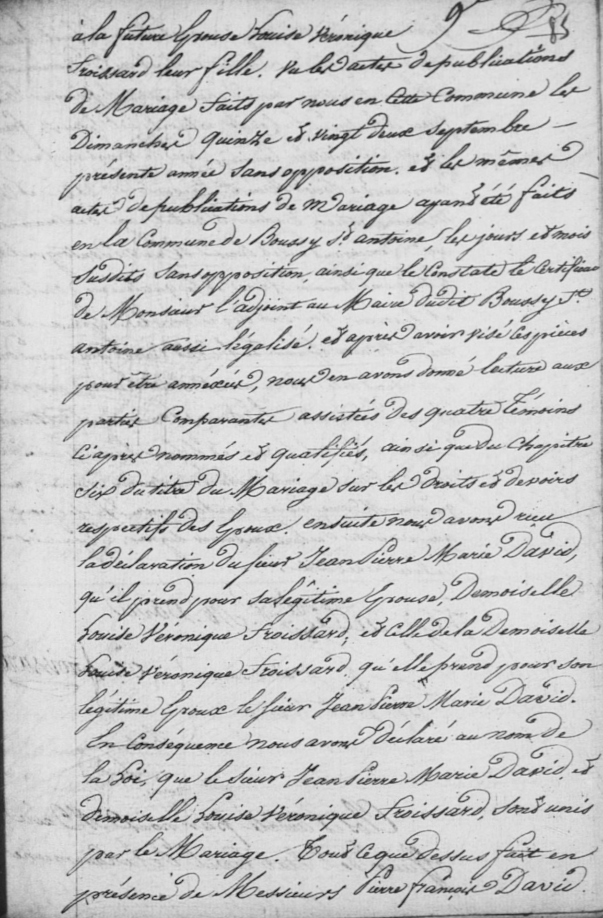 à la future Epouse Louise Véronique
Froissard leur fille. vu les actes de publications
de Mariage faits par nous en cette Commune les
Dimanches quinze et vingt deux septembre –
présente année sans opposition. et les mêmes
actes de publications de mariage ayant été faits
en la Commune de Boussy St. antoine, les jours et mois
susdits sans opposition, ainsi que le Constate le Certificat
de Monsieur l'adjoint au Maire dudit Boussy St.
antoine aussi légalisé. et après avoir visé les pièces
pour être annéxées, nous en avons donné lecture aux
parties Comparantes assistées des quatre Témoins
Ci après nommés et qualifiés, ainsi que du Chapitre
six du titre du Mariage sur les droits et devoirs
respectifs des Epoux. ensuite nous avons reçu
la déclaration du sieur Jean Pierre Marie David,
qu'il prend pour sa légitime Epouse, Demoiselle
Louise Véronique Froissard, et Celle de la Demoiselle
Louise Veronique Froissard. qu'elle prend pour son
légitime Epoux le sieur Jean Pierre Marie David.
En Conséquence nous avons déclaré au nom de
la Loi, que le sieur Jean Pierre Marie David et
demoiselle Louise Véronique Froissard, sont unis
par le Mariage. Tout ce que dessus fait en
présence de Messieurs Pierre françois David.